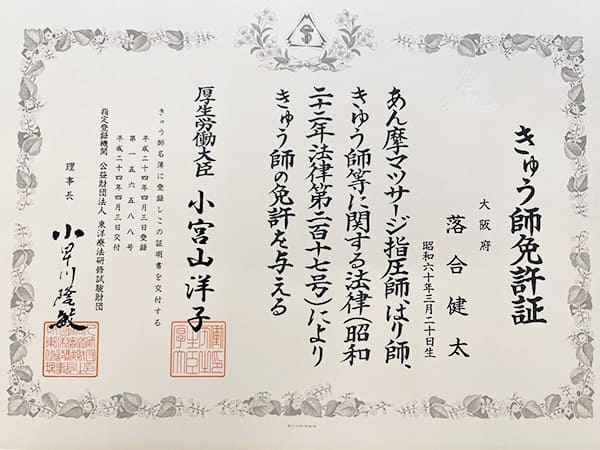 きゅう師免許証
大阪府
落合健太
昭和六十年三月二十日生
あん摩マツサージ指圧師、はり師、
きゆう師等に関する法律(昭和
二十二年法律第二百十七号)により
きゅう師の免許を与える
厚生労働大臣 小宮山洋子
きゅう師名簿に登録しこの証明書を交付する
平成二十四年四月三日登録
第一五六五八八号
平成二十四年四月三日交付
指定登録機関 公益財団法人 東洋療法研修試験財団
理事長 小早川隆敏